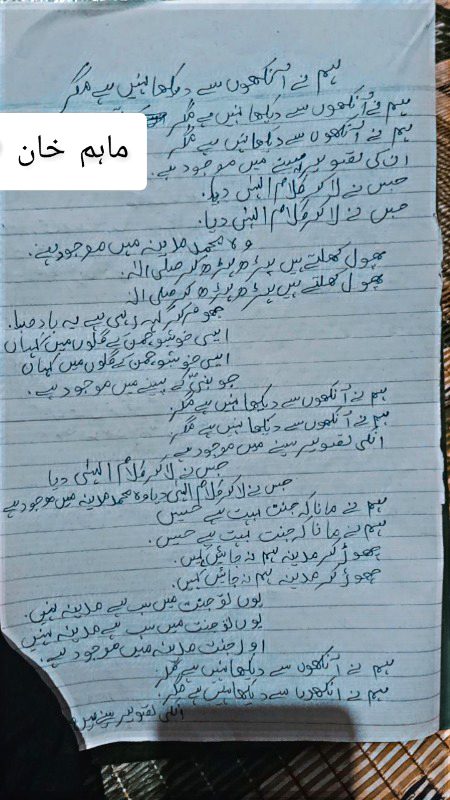 ہم نے آنکھوں سے دیکھا نہیں ہے مگر
ہم نے آنکھوں سے دیکھا نہیں ہے مگر
ہم نے آنکھوں سے دیکھا نہیں ہے مگر
ماہم خان
ان کی تصویر سینے میں موجود ہے۔
جس نے لا کر کلام الہٰی دیا۔
جس نے لا کر کلام الہٰی دیا۔
وہ محمد مدینہ میں موجود ہے۔
پھول کھلتے ہیں پڑھ پڑھ کر صلی الہ
پھول کھلتے ہیں پڑھ پڑھ کر صلی الہ
جھوم کر کہہ رہی ہے یہ باد صبا۔
ایسی خوشبو چمن کے گلوں میں کہاں
ایسی خوشبو چمن کے گلوں میں کہاں
جو نبیؐ کے پسینے میں موجود ہے۔
ہم نے آنکھوں سے دیکھا نہیں ہے مگر۔
ہم نے آنکھوں سے دیکھا نہیں ہے مگر
انکی تصویر سینے میں موجود ہے
جس نے لا کر کلام الہٰی دیا
جس نے لا کر کلام الہٰی دیا وہ محمد مدینہ میں موجود ہے
ہم نے مانا کہ جنت بہت ہے حسین
ہم نے مانا کہ جنت بہت ہے حسین۔
چھوڑ کر مدینہ ہم نہ جائیں کہیں۔
چھوڑ کر مدینہ ہم نہ جائیں کہیں۔
یوں تو جنت میں سب ہے مدینہ نہیں۔
یوں تو جنت میں سب ہے مدینہ نہیں
اور جنت مدینہ میں موجود ہے۔
ہم نے آنکھوں سے دیکھا نہیں ہے مگر
ہم نے آنکھوں سے دیکھا نہیں ہے مگر۔
انکی تصویر سینے میں